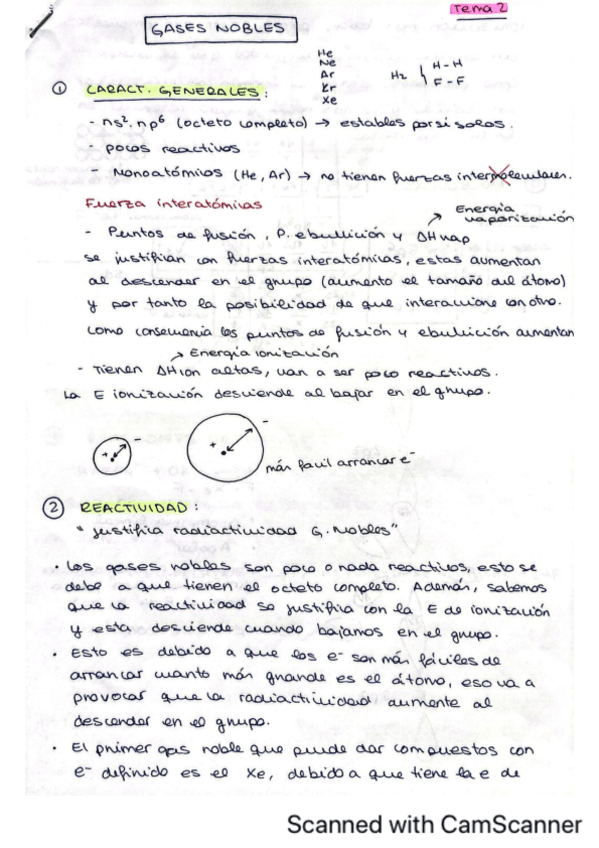 Tema 2
GASES NOBLES
He
Ne
Ar
Kr
Xe
H2 H-H
F-F
① CARACT. GENERALES:
- ns². np⁶ (octeto completo) → estables por si solos.
- pocos reactivos
- Monoatómios (He, Ar) → no tienen fuerzas intermoleculares.
Fuerza interatómicas
Energía vaporización
- Puntos de fusión, P. ebullición y ΔHvap
se justifican con fuerzas interatómicas, estas aumentan
al descender en el grupo (aumento el tamaño del átomo)
y por tanto la posibilidad de que interaccione con otro.
como consecuencia los puntos de fusión y ebullición aumentan
→ Energía ionización
- Tienen ΔHion altas, van a ser poco reactivos.
La E ionización desciende al bajar en el grupo.
+ -
+ -
más facil arrancar e⁻
② REACTIVIDAD:
"justifica radiactividad G. Nobles"
• Los gases nobles son poco o nada reactivos, esto se
debe a que tienen el octeto completo. Además, sabemos
que la reactividad se justifica con la E de ionización
y esta desciende cuando bajamos en el grupo.
• Esto es debido a que los e⁻ son más fáciles de
arrancar cuanto más grande es el átomo, eso va a
provocar que la radiactividad aumente al
descender en el grupo.
• El primer gas noble que puede dar compuestos con
e⁻ definido es el Xe, debido a que tiene la e de
Scanned with CamScanner